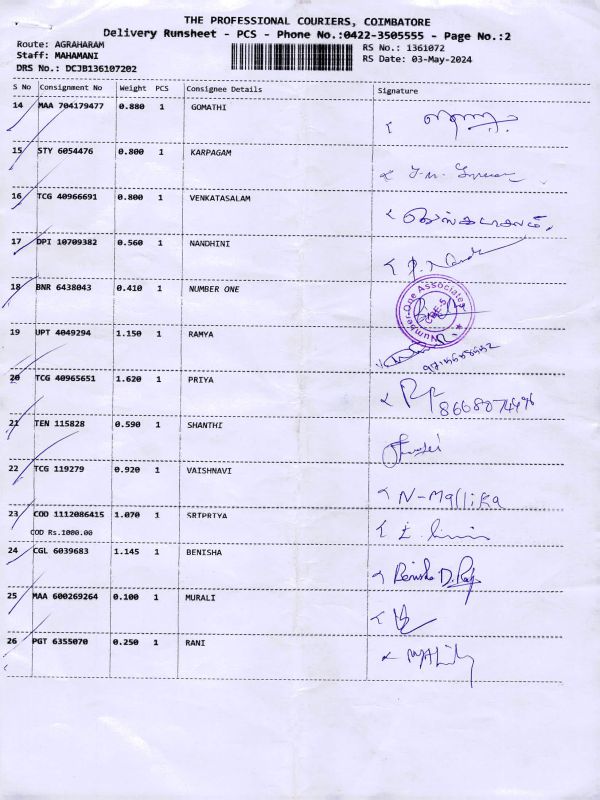 THE PROFESSIONAL COURIERS, COIMBATORE
Delivery Runsheet - PCS - Phone No.:0422-3505555 - Page No.:2
Route: AGRAHARAM
Staff: MAHAMANI
DRS No.: DCJB136107202
RS No.: 1361072
RS Date: 03-May-2024
S No Consignment No Weight PCS Consignee Details Signature
14 MAA 704179477 0.880 1 GOMATHI
15 STY 6054476 0.800 1 KARPAGAM
16 TCG 40966691 0.800 1 VENKATASALAM வெங்கடாசலம்.
17 DPI 10709382 0.560 1 NANDHINI
18 BNR 6438043 0.410 1 NUMBER ONE Number-One Associates
19 UPT 4049294 1.150 1 RAMYA
20 TCG 40965651 1.620 1 PRIYA
21 TEN 115828 0.590 1 SHANTHI
22 TCG 119279 0.920 1 VAISHNAVI N-Mallika
23 COD 1112086415 1.070 1 SRIPRIYA
COD Rs.1000.00
24 CGL 6039683 1.145 1 BENISHA Benisha D.Raj
25 MAA 600269264 0.100 1 MURALI
26 PGT 6355070 0.250 1 RANI